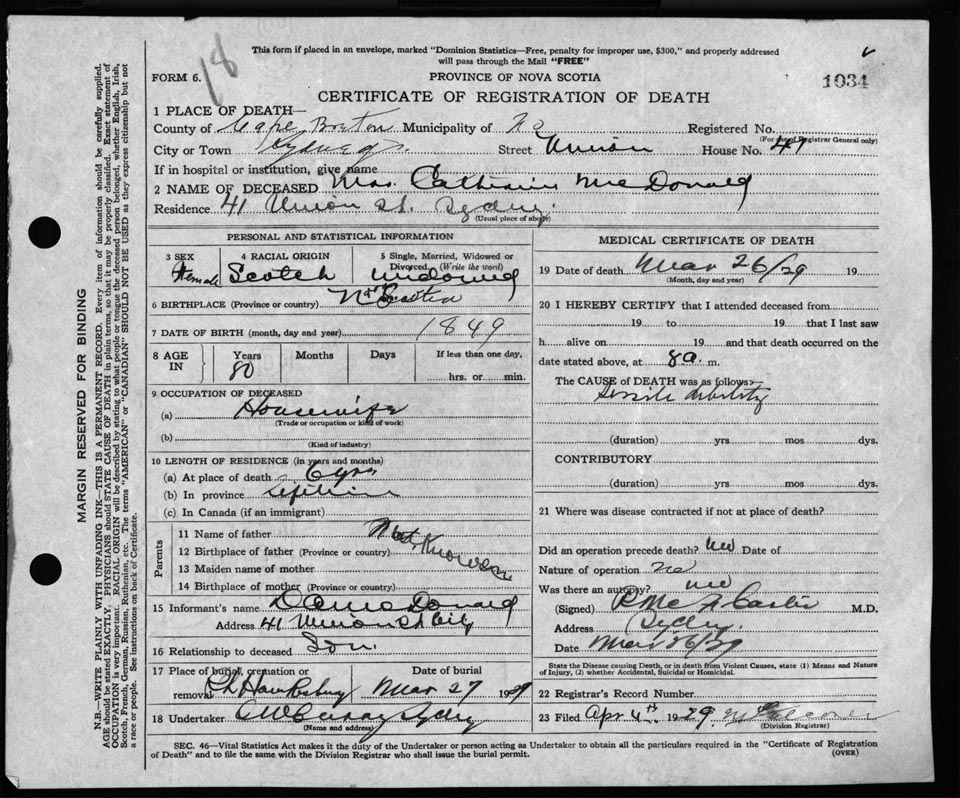 18
This form if placed in an envelope, marked "Dominion Statistics—Free, penalty for improper use, $300," and properly addressed
will pass through the Mail "FREE"
FORM 6.
PROVINCE OF NOVA SCOTIA
1034
CERTIFICATE OF REGISTRATION OF DEATH
1 PLACE OF DEATH—
County of Cape Breton Municipality of Registered No.
(For use of Registrar General only)
City or Town Sydney Street Union House No. 41
If in hospital or institution, give name
2 NAME OF DECEASED Mrs. Catherine McDonald
Residence 41 Union St. Sydney.
(Usual place of abode)
PERSONAL AND STATISTICAL INFORMATION
3 SEX 4 RACIAL ORIGIN 5 Single, Married, Widowed or Divorced (Write the word)
Female Scotch Widowed
6 BIRTHPLACE (Province or country)
7 DATE OF BIRTH (month, day and year) 1849
8 AGE IN Years Months Days If less than one day,
80 hrs. or min.
9 OCCUPATION OF DECEASED
(a) Housewife
(Trade or occupation or kind of work)
(b)
(Kind of industry)
10 LENGTH OF RESIDENCE (in years and months)
(a) At place of death 6 yrs
(b) In province Lifetime
(c) In Canada (if an immigrant)
Parents
11 Name of father Not Known
12 Birthplace of father (Province or country)
13 Maiden name of mother
14 Birthplace of mother (Province or country)
15 Informant's name McDonald
Address 41 Union St City
16 Relationship to deceased Son.
17 Place of burial, cremation or removal Date of burial
Pt. Hawksbury Mar 27 1929
18 Undertaker Sydney
(Name and address)
MEDICAL CERTIFICATE OF DEATH
19 Date of death Mar 26/29 19
(Month, day and year)
20 I HEREBY CERTIFY that I attended deceased from
19 to 19 that I last saw
h alive on 19 and that death occurred on the
date stated above, at 8 a. m.
The CAUSE of DEATH was as follows:—
Senile debility
(duration) yrs mos dys.
CONTRIBUTORY
(duration) yrs mos dys.
21 Where was disease contracted if not at place of death?
Did an operation precede death? no Date of
Nature of operation no
Was there an autopsy? no
(Signed) M.D.
Address Sydney.
Date Mar 26/29
State the Disease causing Death, or in death from Violent Causes, state (1) Means and Nature
of Injury, (2) whether Accidental, Suicidal or Homicidal.
22 Registrar's Record Number
23 Filed Apr 4th 1929.
(Division Registrar)
SEC. 46—Vital Statistics Act makes it the duty of the Undertaker or person acting as Undertaker to obtain all the particulars required in the "Certificate of Registration
of Death" and to file the same with the Division Registrar who shall issue the burial permit.
(OVER)
MARGIN RESERVED FOR BINDING
N.B.—WRITE PLAINLY WITH UNFADING INK—THIS IS A PERMANENT RECORD. Every item of information should be carefully supplied.
AGE should be stated EXACTLY. PHYSICIANS should STATE CAUSE OF DEATH in plain terms, so that it may be properly classified. Exact statement of
OCCUPATION is very important. RACIAL ORIGIN will be described by stating to what people or tongue the deceased person belonged, whether English, Irish,
Scotch, French, German, Russian, Ruthenian, etc. The terms "AMERICAN" or "CANADIAN" SHOULD NOT BE USED as they express citizenship but not
a race or people. See instructions on back of Certificate.